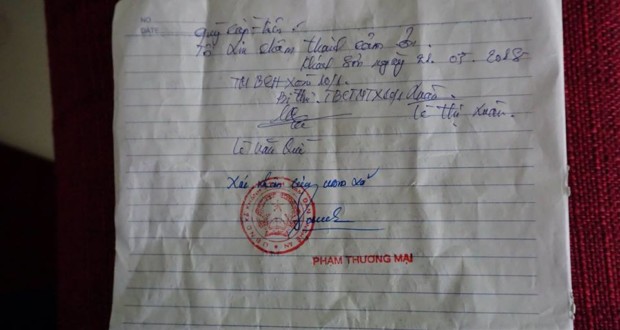 NO
DATE
quý cấp trên
Tôi xin chân thành cảm ơn.
Khánh Sơn ngày 21. 05. 2018
TM BCH xóm 10/1
Bí thư. TBCTMTX10/1 Xuân.
Lê Thị Xuân.
Lê Văn Quế
Xác nhận của ủy ban xã
PHẠM THƯƠNG MẠI